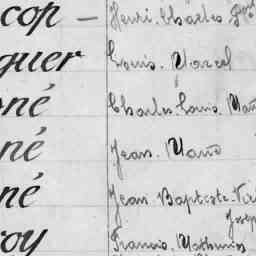 cop — Henri. Charles
guer Louis. Marcel
né Charles. Louis.
né Jean. Marie
né Jean. Baptiste.
Joseph
roy Francois. Mathurin